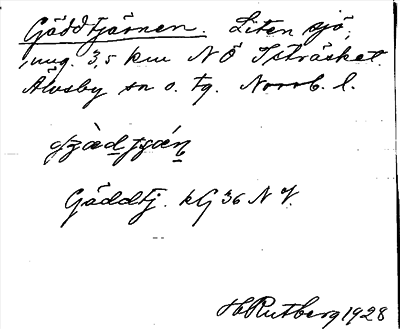 Gäddtjärnen. Liten sjö,
ung. 3,5 km NÖ Isträsket.
Älvsby sn o. tg. Norrb. l.
Gäddtj. kG 36 N V.
H Rutberg 1928